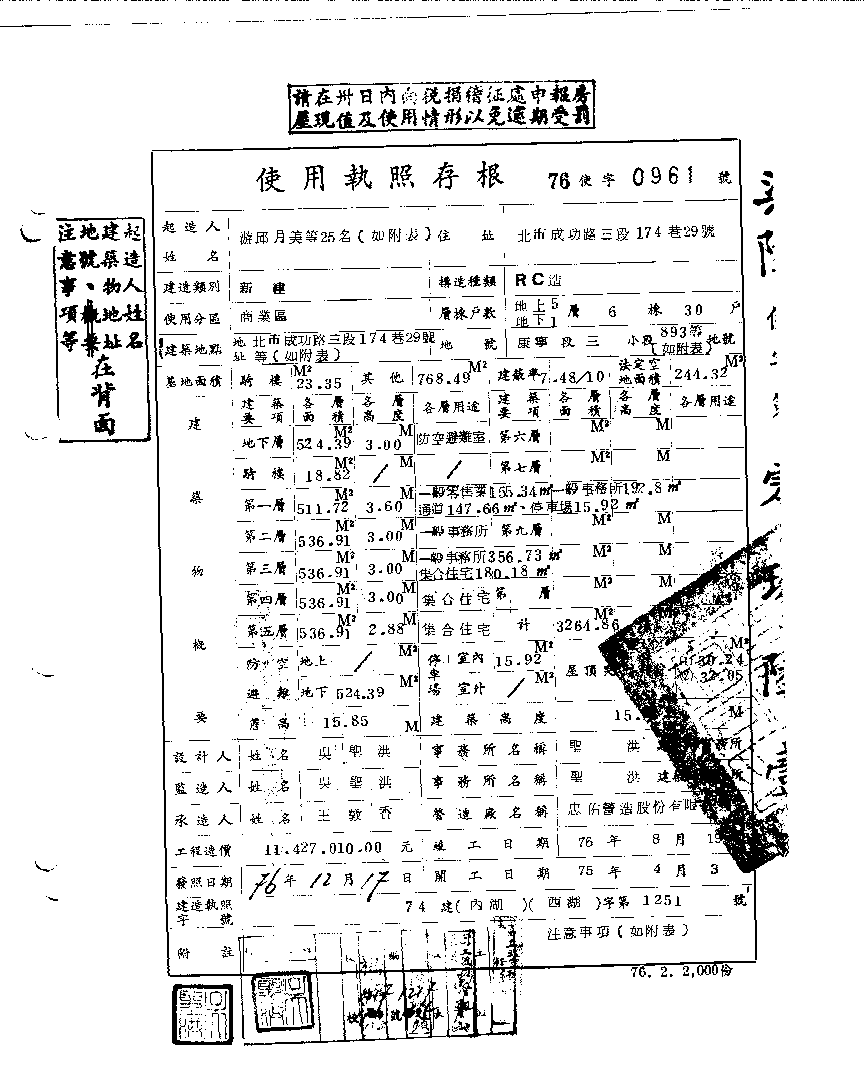 請在卅日內向稅捐稽征處申報房
屋現值及使用情形以免逾期受罰
使用執照存根 76使字0961號
起造人
注意事項等
地號、概要
建築物地址
起造人姓名
在背面
姓名 游邱月美等25名(如附表) 住址 北市成功路三段174巷29號
建造類別 新建 構造種類 RC造
使用分區 商業區 層棟戶數 地上5地下1層 6棟 30戶
建築地點 地址 北市成功路三段174巷29號等(如附表) 地號 康寧段三小段893等(如附表)地號
基地面積 騎樓 23.35 M² 其他 768.49 M² 建蔽率 7.48/10 法定空地面積 244.32 M²
建築要項 各層面積 各層高度 各層用途 建築要項 各層面積 各層高度 各層用途
建築物概要
地下層 524.39 M² 3.00 M 防空避難室 第六層 M² M
騎樓 18.82 M² / M / 第七層 M² M
第一層 511.72 3.60 一般零售業155.34㎡一般事務所192.8㎡
通道147.66㎡、停車場15.92㎡
第二層 536.91 M² 3.00 M 一般事務所 第九層 M² M
第三層 536.91 M² 3.00 M 一般事務所356.73㎡ M² M
集合住宅180.18㎡
第四層 536.91 M² 3.00 M 集合住宅 第 層 M² M
第五層 536.91 M² 2.88 M 集合住宅 計 3264.86 M²
防空避難 地上 / M² 停車場 室內 15.92 M² 屋頂 30.24 M²
地下 524.39 M² 室外 / M² 32.05
簷高 15.85 M 建築高度 15. M
設計人 姓名 吳聖洪 事務所名稱 聖洪 事務所
監造人 姓名 吳聖洪 事務所名稱 聖洪建 所
承造人 姓名 王敦香 營造廠名稱 忠佑營造股份有限
工程造價 11,427,010.00元 竣工日期 76年 8月 15
發照日期 76年12月17日 開工日期 75年 4月 3
建造執照字號 74建(內湖)(西湖)字第1251號
附註 注意事項(如附表)
76. 2. 2,000份